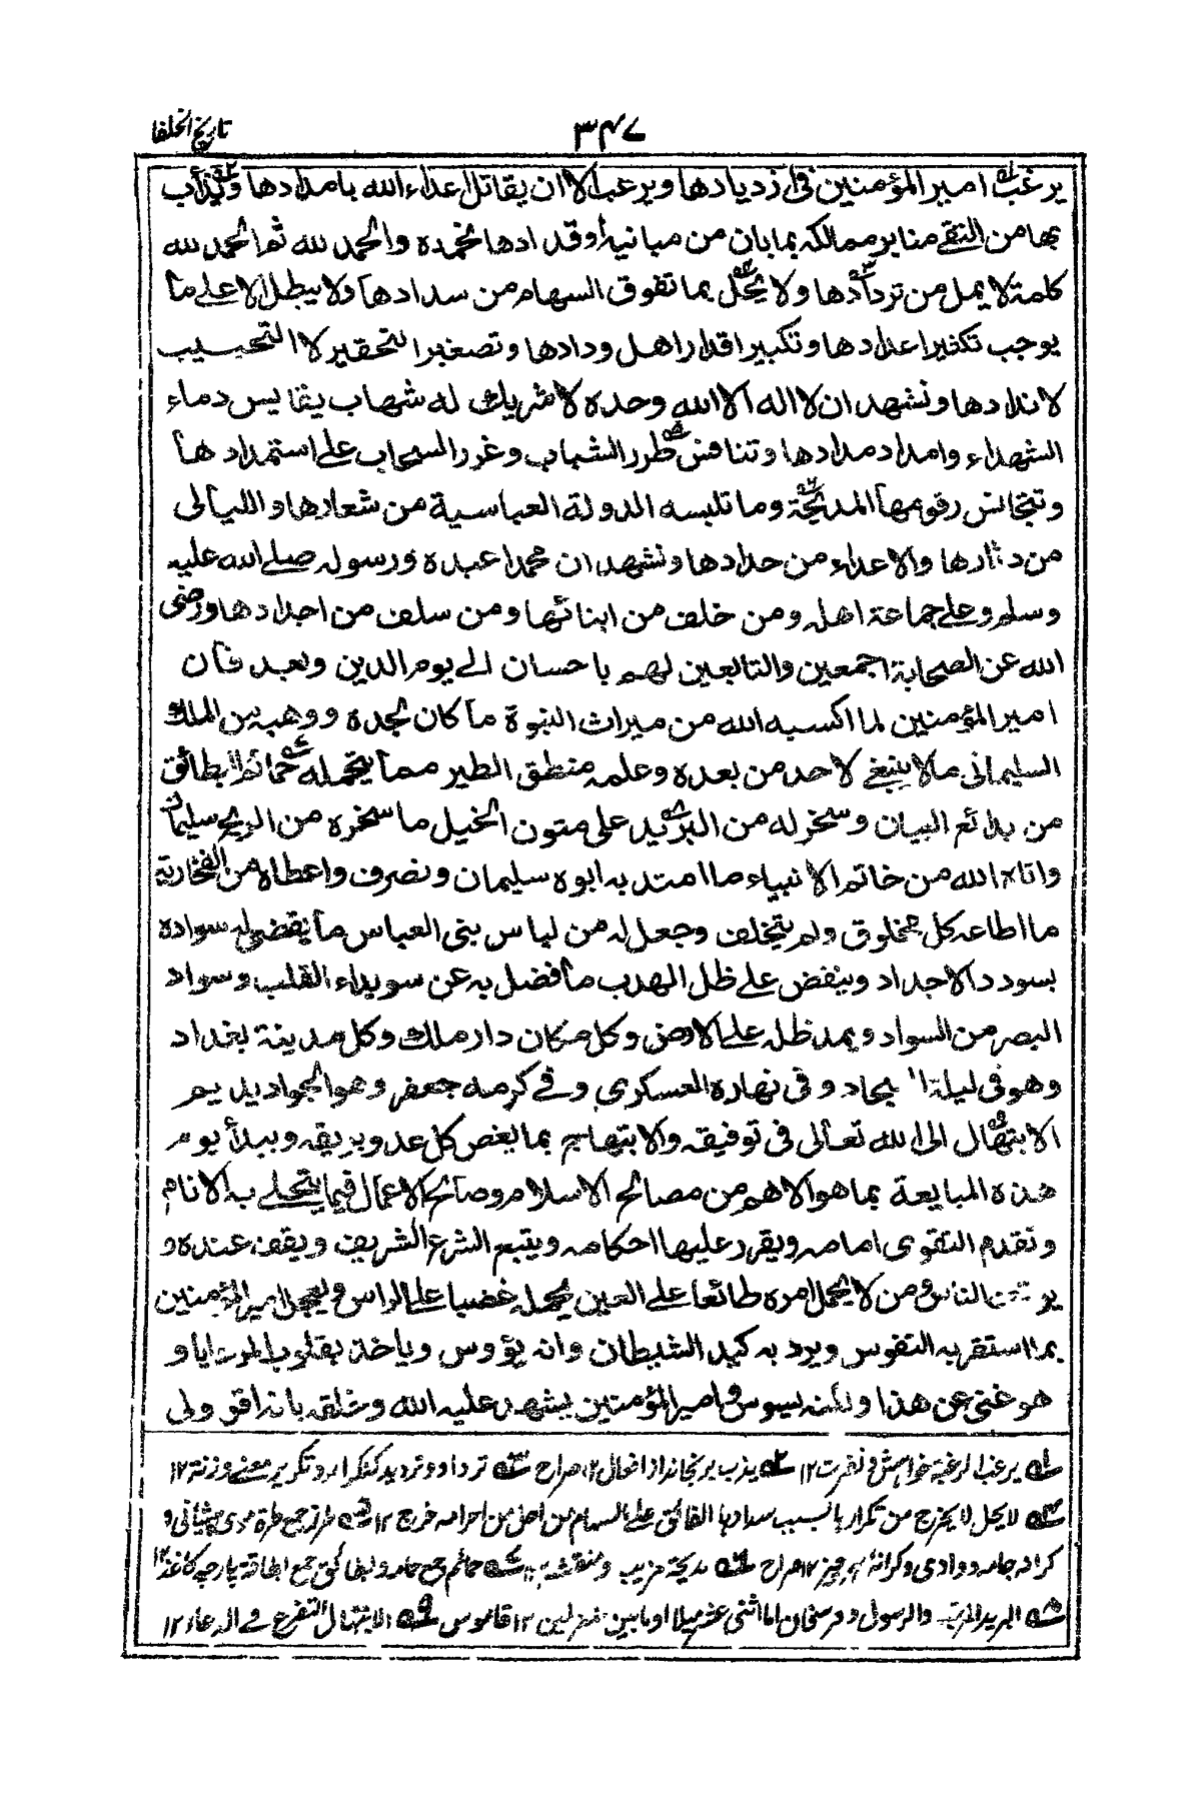 تاريخ الخلفا
۳۴۷
يرغب امير المؤمنين فى ازديادها ويرغب الا ان يقاتل اعداء الله بامدادها ويذأب
بها من التقى منابر ممالكه بما بان من مباينة اوقد ادها نحمده والحمد لله ثم الحمد لله
كلمة لا يمل من تردادها ولا يخل بما تفوق السهام من سدادها ولا يبطل الا على ما
يوجب تكثير اعدادها وتكبير اقدار اهل ودادها وتصغير التحقير لا التحبيب
لاندادها ونشهد ان لا اله الا الله وحده لا شريك له شهاب يتقايس دماء
الشهداء وامداد مدادها وتنافس طرر الشباب وغرر السحاب على استمدادها
وتتجانس رقومها المدبجة وما تلبسه الدولة العباسية من شعارها والليالى
من دثارها والاعداء من حدادها ونشهد ان محمدا عبده ورسوله صلى الله عليه
وسلم وعلى جماعة اهله ومن خلف من ابنائها ومن سلف من اجدادها ورضى
الله عن الصحابة اجمعين والتابعين لهم باحسان الى يوم الدين وبعد فان
امير المؤمنين لما اكسبه الله من ميراث النبوة ما كان لجده ووهبه من الملك
السليمانى ما لا ينبغى لاحد من بعده وعلمه منطق الطير مما يتحمله حمائم البطائق
من بدائع البيان وسخر له من البريد على متون الخيل ما سخره من الريح سليمان
واتاه الله من خاتم الانبياء ما امتد به ابوه سليمان وتصرف واعطاه من الفخار به
ما اطاعه كل مخلوق ولم يتخلف وجعل له من لباس بنى العباس ما يقضى له سواده
بسودد الاجداد وينفض على ظل الهدب ما فضل به عن سويداء القلب وسواد
البصر من السواد ويمد ظله على الارض وكل مكان دار ملك وكل مدينة بغداد
وهو فى ليله السجاد وفى نهاره العسكرى وفى كرمه جعفر وهو الجواد يديم
الابتهال الى الله تعالى فى توفيقه والابتهاج بما يغص كل عدو بريقه ويبدأ يوم
هذه المبايعة بما هو الاهم من مصالح الاسلام وصالح الاعمال فيما يتحلى به الانام
ويقدم التقوى امامه ويقرر عليها احكامه ويتبع الشرع الشريف ويقف عنده و
الناس ومن لا يحمل امره طائعا على العين يحمله غصبا على الراس ويعجل امير المؤمنين
بما استقر به النفوس ويرد به كيد الشيطان وانه يؤوس وياخذ بقلوب الرعايا و
هو غنى عن هذا ولكنه يسوس وامير المؤمنين يشهد عليه الله وخلقه بانه اقر ولى
۱ يرغب الرغبة خواهش و نفرت ۱۲ ۲ يذب برنجاند از افعال ۱۲ صراح ۳ ترداد و ترديد كنكرار و تكرير معنى وزنة ۱۲
۴ لا يحل لا يخرج من تكرارها بسبب سدادها الفائق على السهام من احل من احرامه خرج ۱۲ ۵ طرر جمع طرة موى پيشانى و
كرانه جامه و وادى و كرانه هر چيز ۱۲ صراح ۶ مدبجة مزيب و منقشة ۱۲ ۷ حمائم جمع حمامه و بطائق جمع بطاقة پارچه كاغذ ۱۲
۸ البريد المرتبة والرسول و فرسخان او اثنى عشر ميلا او ما بين منزلين ۱۲ قاموس ۹ الابتهال التضرع فى الدعاء ۱۲